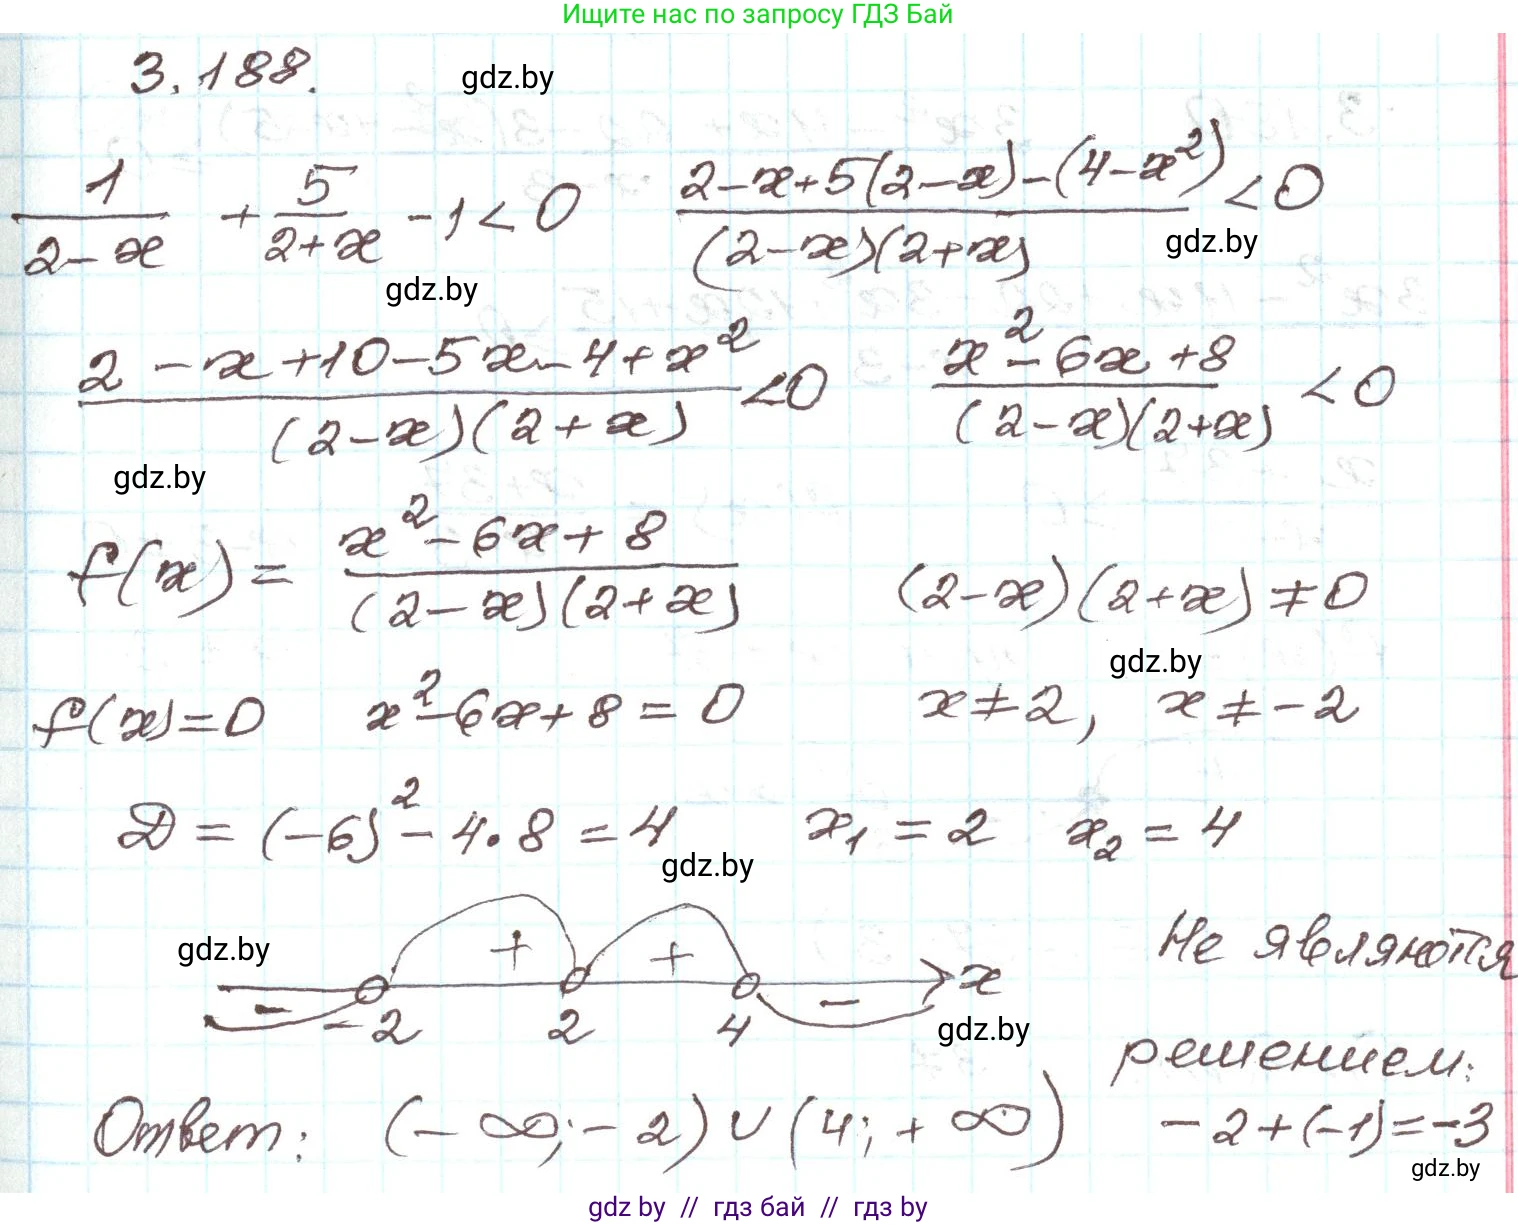 Ищите нас по запросу ГДЗ Бай
3.188. gdz.by
1/(2-x) + 5/(2+x) - 1 < 0   (2-x+5(2-x)-(4-x²))/((2-x)(2+x)) < 0
gdz.by gdz.by
(2-x+10-5x-4+x²)/((2-x)(2+x)) < 0   (x²-6x+8)/((2-x)(2+x)) < 0
gdz.by
f(x) = (x²-6x+8)/((2-x)(2+x))   (2-x)(2+x) ≠ 0
gdz.by
f(x)=0   x²-6x+8=0   x≠2, x≠-2
D = (-6)²-4·8=4   x₁=2   x₂=4
gdz.by
gdz.by + + x Не являются
- -2 2 4 - gdz.by
решением:
Ответ: (-∞;-2)∪(4;+∞) -2+(-1)=-3
gdz.by
gdz by // гдз бай // гдз by